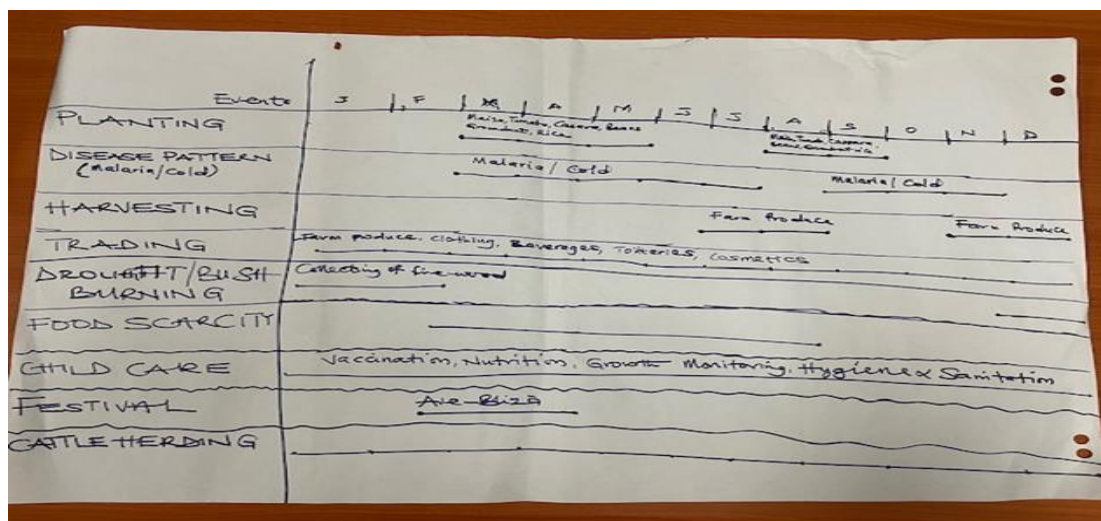 Events J F M A M J J A S O N D
PLANTING Maize, Tomato, Cassava, Beans
Groundnut, Rice
DISEASE PATTERN Malaria/ Cold Malaria/ Cold
(Malaria/Cold)
HARVESTING Farm Produce Farm Produce
TRADING Farm produce, clothing, Beverages, Toiteries, Cosmetics
DROUGHT/BUSH Collecting of fire wood
BURNING
FOOD SCARCITY
CHILD CARE Vaccination, Nutrition, Growth Monitoring, Hygiene & Sanitation
FESTIVAL
CATTLE HERDING